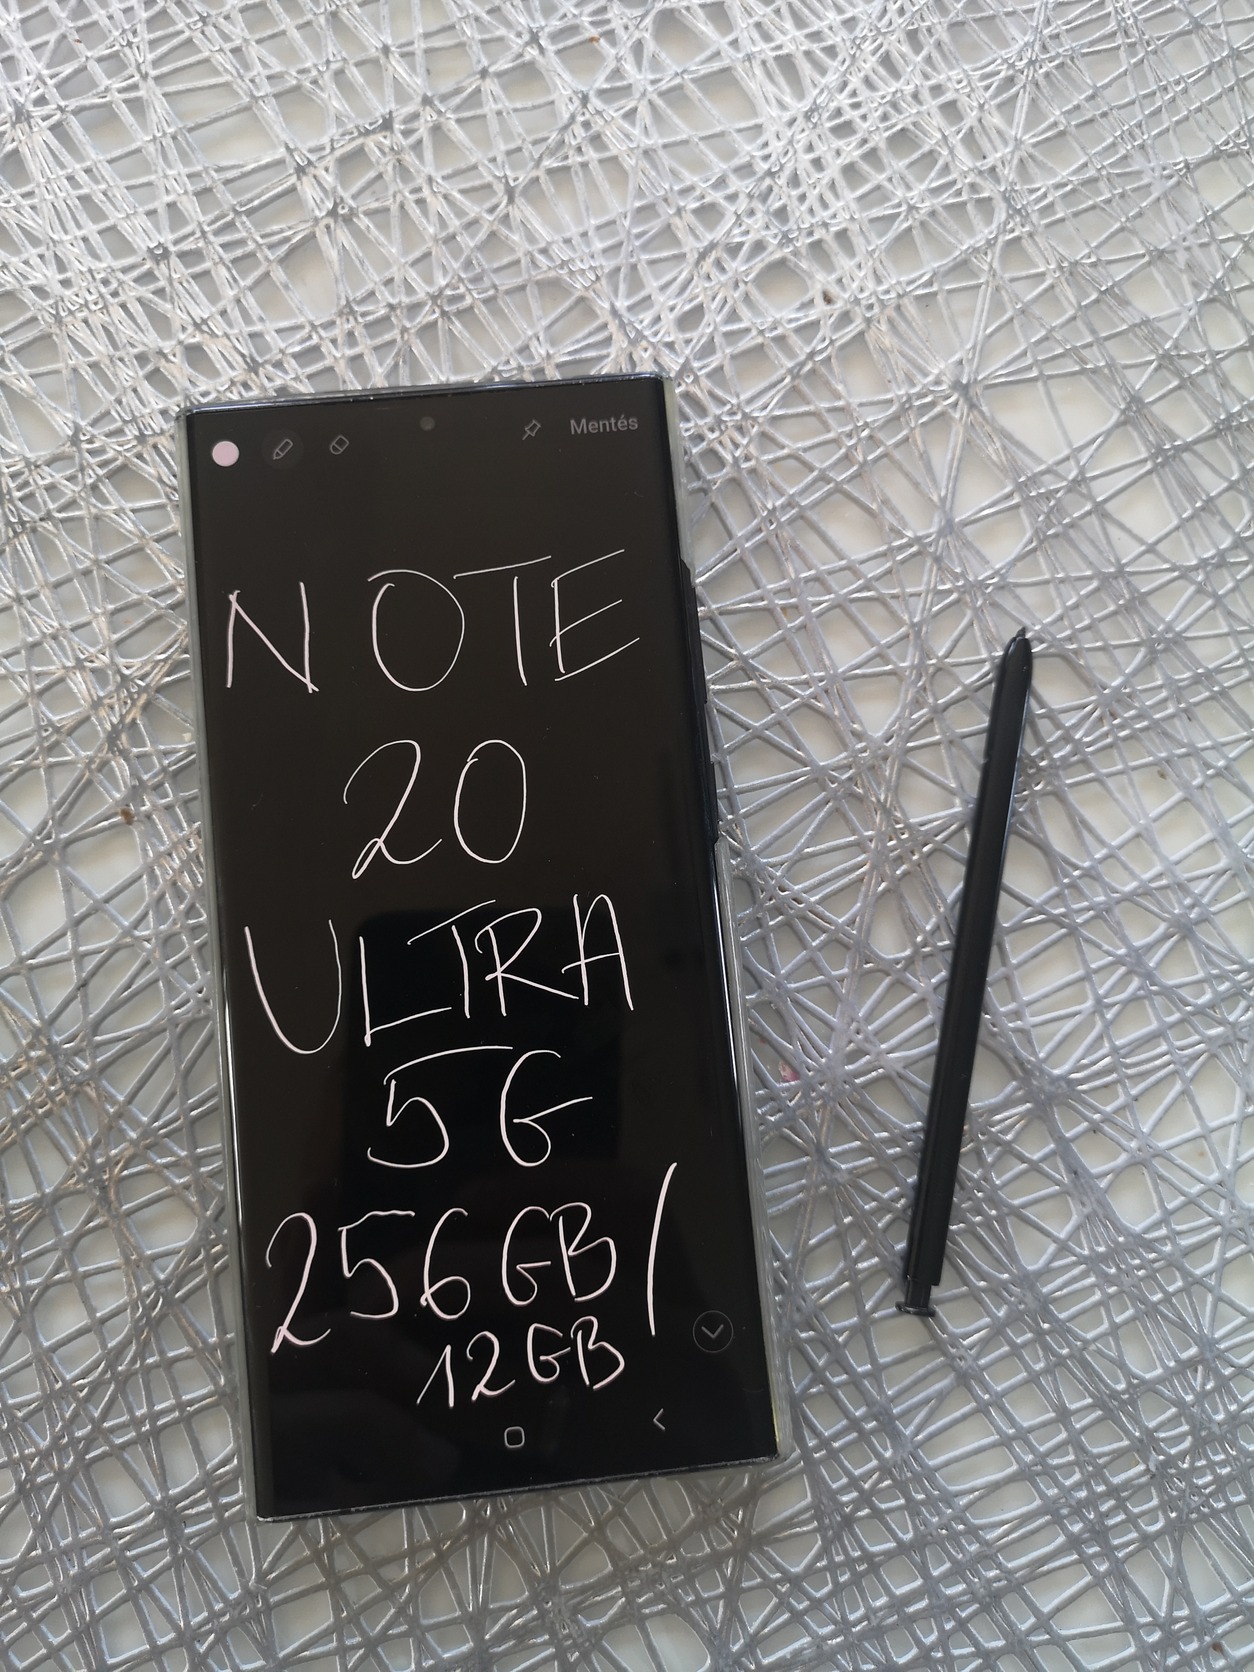 Mentés
NOTE
20
ULTRA
5G
256GB/
12GB